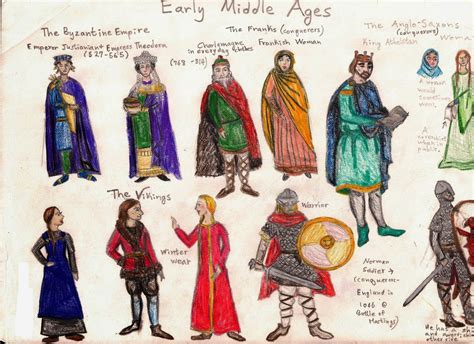 Early Middle Ages
The Byzantine Empire
Emperor Justinian I
(527-565)
Empress Theodora
The Franks (conquerors)
Charlemagne
in everyday clothes
(768-814)
Frankish Woman
The Anglo-Saxons
(conquerors)
King Athelstan
Woman
A woman
would
sometimes
wear
A
when in
public.
The Vikings
Winter
wear
Warrior
Norman
Soldier →
(conquer
England in
1066 @
Battle of
Hastings)
He has a
and
other